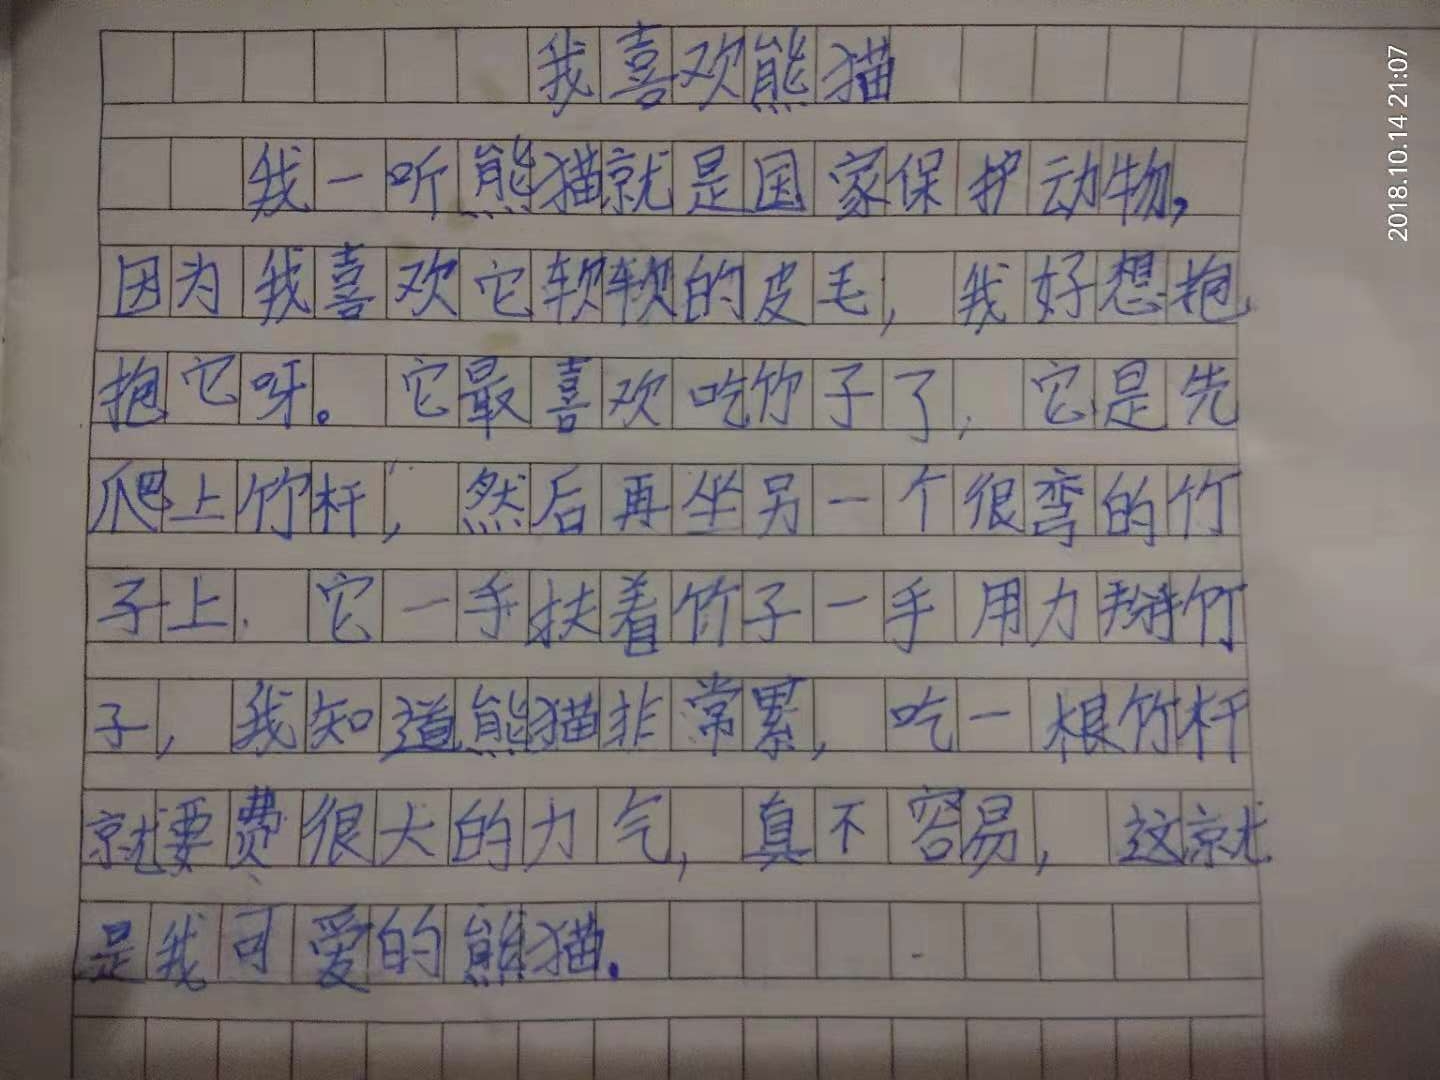 我喜欢熊猫
我一听熊猫就是国家保护动物,
因为我喜欢它软软的皮毛,我好想抱
抱它呀。它最喜欢吃竹子了,它是先
爬上竹杆,然后再坐另一个很弯的竹
子上.它一手扶着竹子一手用力掰竹
子,我知道熊猫非常累,吃一根竹杆
就要费很大的力气,真不容易,这就
是我可爱的熊猫.
2018.10.14 21:07